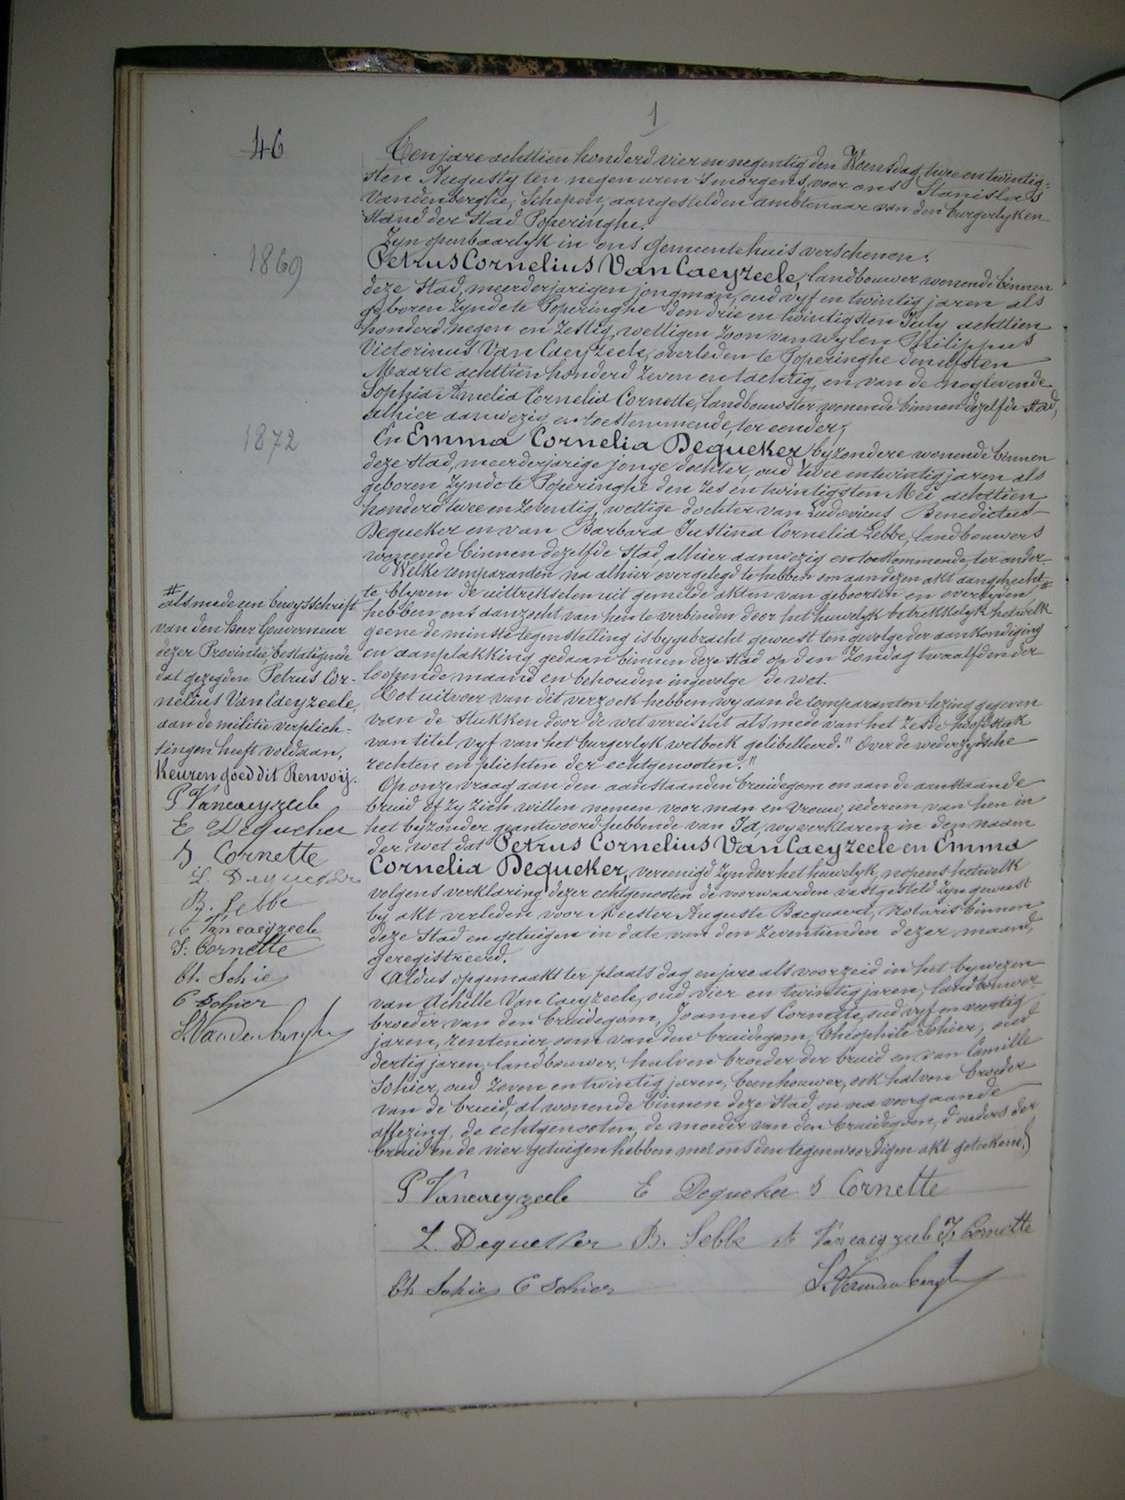 1
46
Ten jare achttien honderd vier en negentig den Woensdag, twee en twintig-
sten Augusty ten negen uren 's morgens, voor ons Stanislas
Vandenberghe, Schepen, aangestelden ambtenaar van den burgerlyken
Stand der Stad Poperinghe.
Zyn openbaarlyk in ons gemeentehuis verschenen:
1869
Petrus Cornelius Van Caeyzeele, landbouwer wonende binnen
deze Stad, meerderjarigen jongman, oud vyf en twintig jaren als
geboren zynde te Poperinghe den drie en twintigsten July achttien
honderd negen en zestig, wettigen zoon van wylen Philippus
Victorinus Van Caeyzeele, overleden te Poperinghe den elfsten
Maarte achttien honderd zeven en tachtig, en van de nog levende
Sophia Amelia Cornelia Cornette, landbouwster wonende binnen dezelfde stad,
alhier aanwezig en toestemmende, ter eender;
1872
En Emma Cornelia Dequeker, byzondere wonende binnen
deze Stad, meerderjarige jonge dochter, oud twee en twintig jaren als
geboren zynde te Poperinghe den zes en twintigsten Mei achttien
honderd twee en zeventig, wettige dochter van Ludovicus Benedictus
Dequeker en van Barbara Justina Cornelia Lebbe, landbouwers
wonende binnen dezelfde Stad, alhier aanwezig en toestemmende, ter ander.
Welke comparanten na alhier overgelegd te hebben om aan dezen akt aangehecht
te blyven de uittrekselen uit gemelde akten van geboorten en overlyden #
hebben ons aanzocht van hen te verbinden door het huwelyk betrekkelyk hetwelk
geene de minste tegenstelling is bygebracht geweest ten gevolge der aankondiging
en aanplakking gedaan binnen deze Stad op den Zondag twaalfden der
loopende maand en behouden ingevolge de wet.
Tot uitvoer van dit verzoek hebben wy aan de comparanten lezing gegeven
van de stukken door de wet vereischt als mede van het zesde hoofdstuk
van titel vyf van het burgerlyk wetboek gelibelleerd: "Over de wederzydsche
rechten en plichten der echtgenooten."
Op onze vraag aan den aanstaanden bruidegom en aan de aanstaande
bruid of zy zich willen nemen voor man en vrouw, iedereen van hen in
het byzonder geantwoord hebbende van Ja, wy verklaren in den naam
der wet dat Petrus Cornelius Van Caeyzeele en Emma
Cornelia Dequeker, vereenigd zyn door het huwelyk, nopens hetwelk
volgens verklaring dezer echtgenooten de voorwaarden vastgesteld zyn geweest
by akt verleden voor Meester Auguste Bacquaert, Notaris binnen
deze Stad en getuigen in date van den zeventienden dezer maand,
geregistreerd.
Aldus opgemaakt ter plaats dag en jare als voorzeid in het bywezen
van Achille Van Caeyzeele, oud vier en twintig jaren, landbouwer
broeder van den bruidegom, Joannes Cornette, oud vyf en veertig
jaren, rentenier oom van den bruidegom, Théophile Sohier, oud
dertig jaren, landbouwer, halven broeder der bruid en van Camille
Sohier, oud zeven en twintig jaren, beenhouwer, ook halven broeder
van de bruid, al wonende binnen deze Stad, en na voorgaande
aflezing, de echtgenooten, de moeder van den bruidegom, d'ouders der
bruid en de vier getuigen hebben met ons den tegenwoordigen akt geteekend.
P Vancaeyzeele E Dequeker S Cornette
L. Dequeker B. Lebbe A Vancaeyzeele J. Cornette
Th Sohier C Sohier S. Vandenberghe
# alsmede een bewysschrift
van den heer Gouverneur
dezer Provintie, bestatigende
dat gezegden Petrus Cor-
nelius Van Caeyzeele,
aan de militie verplich-
tingen heeft voldaan,
Keuren goed dit Renvooij.
P Vancaeyzeele
E Dequeker
S Cornette
L. Dequeker
B. Lebbe
A Vancaeyzeele
J. Cornette
Th. Sohier
C Sohier
S. Vandenberghe